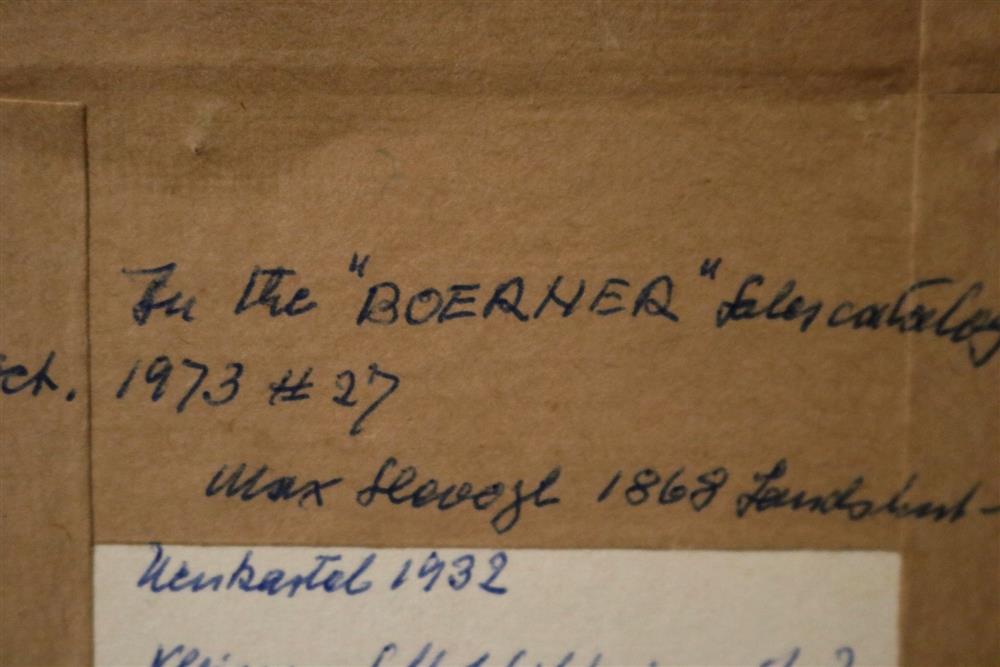 In the "BOERNER" Salescatalog
ct. 1973 # 27
Max Slevogt 1868 Landshut-
Neukastel 1932